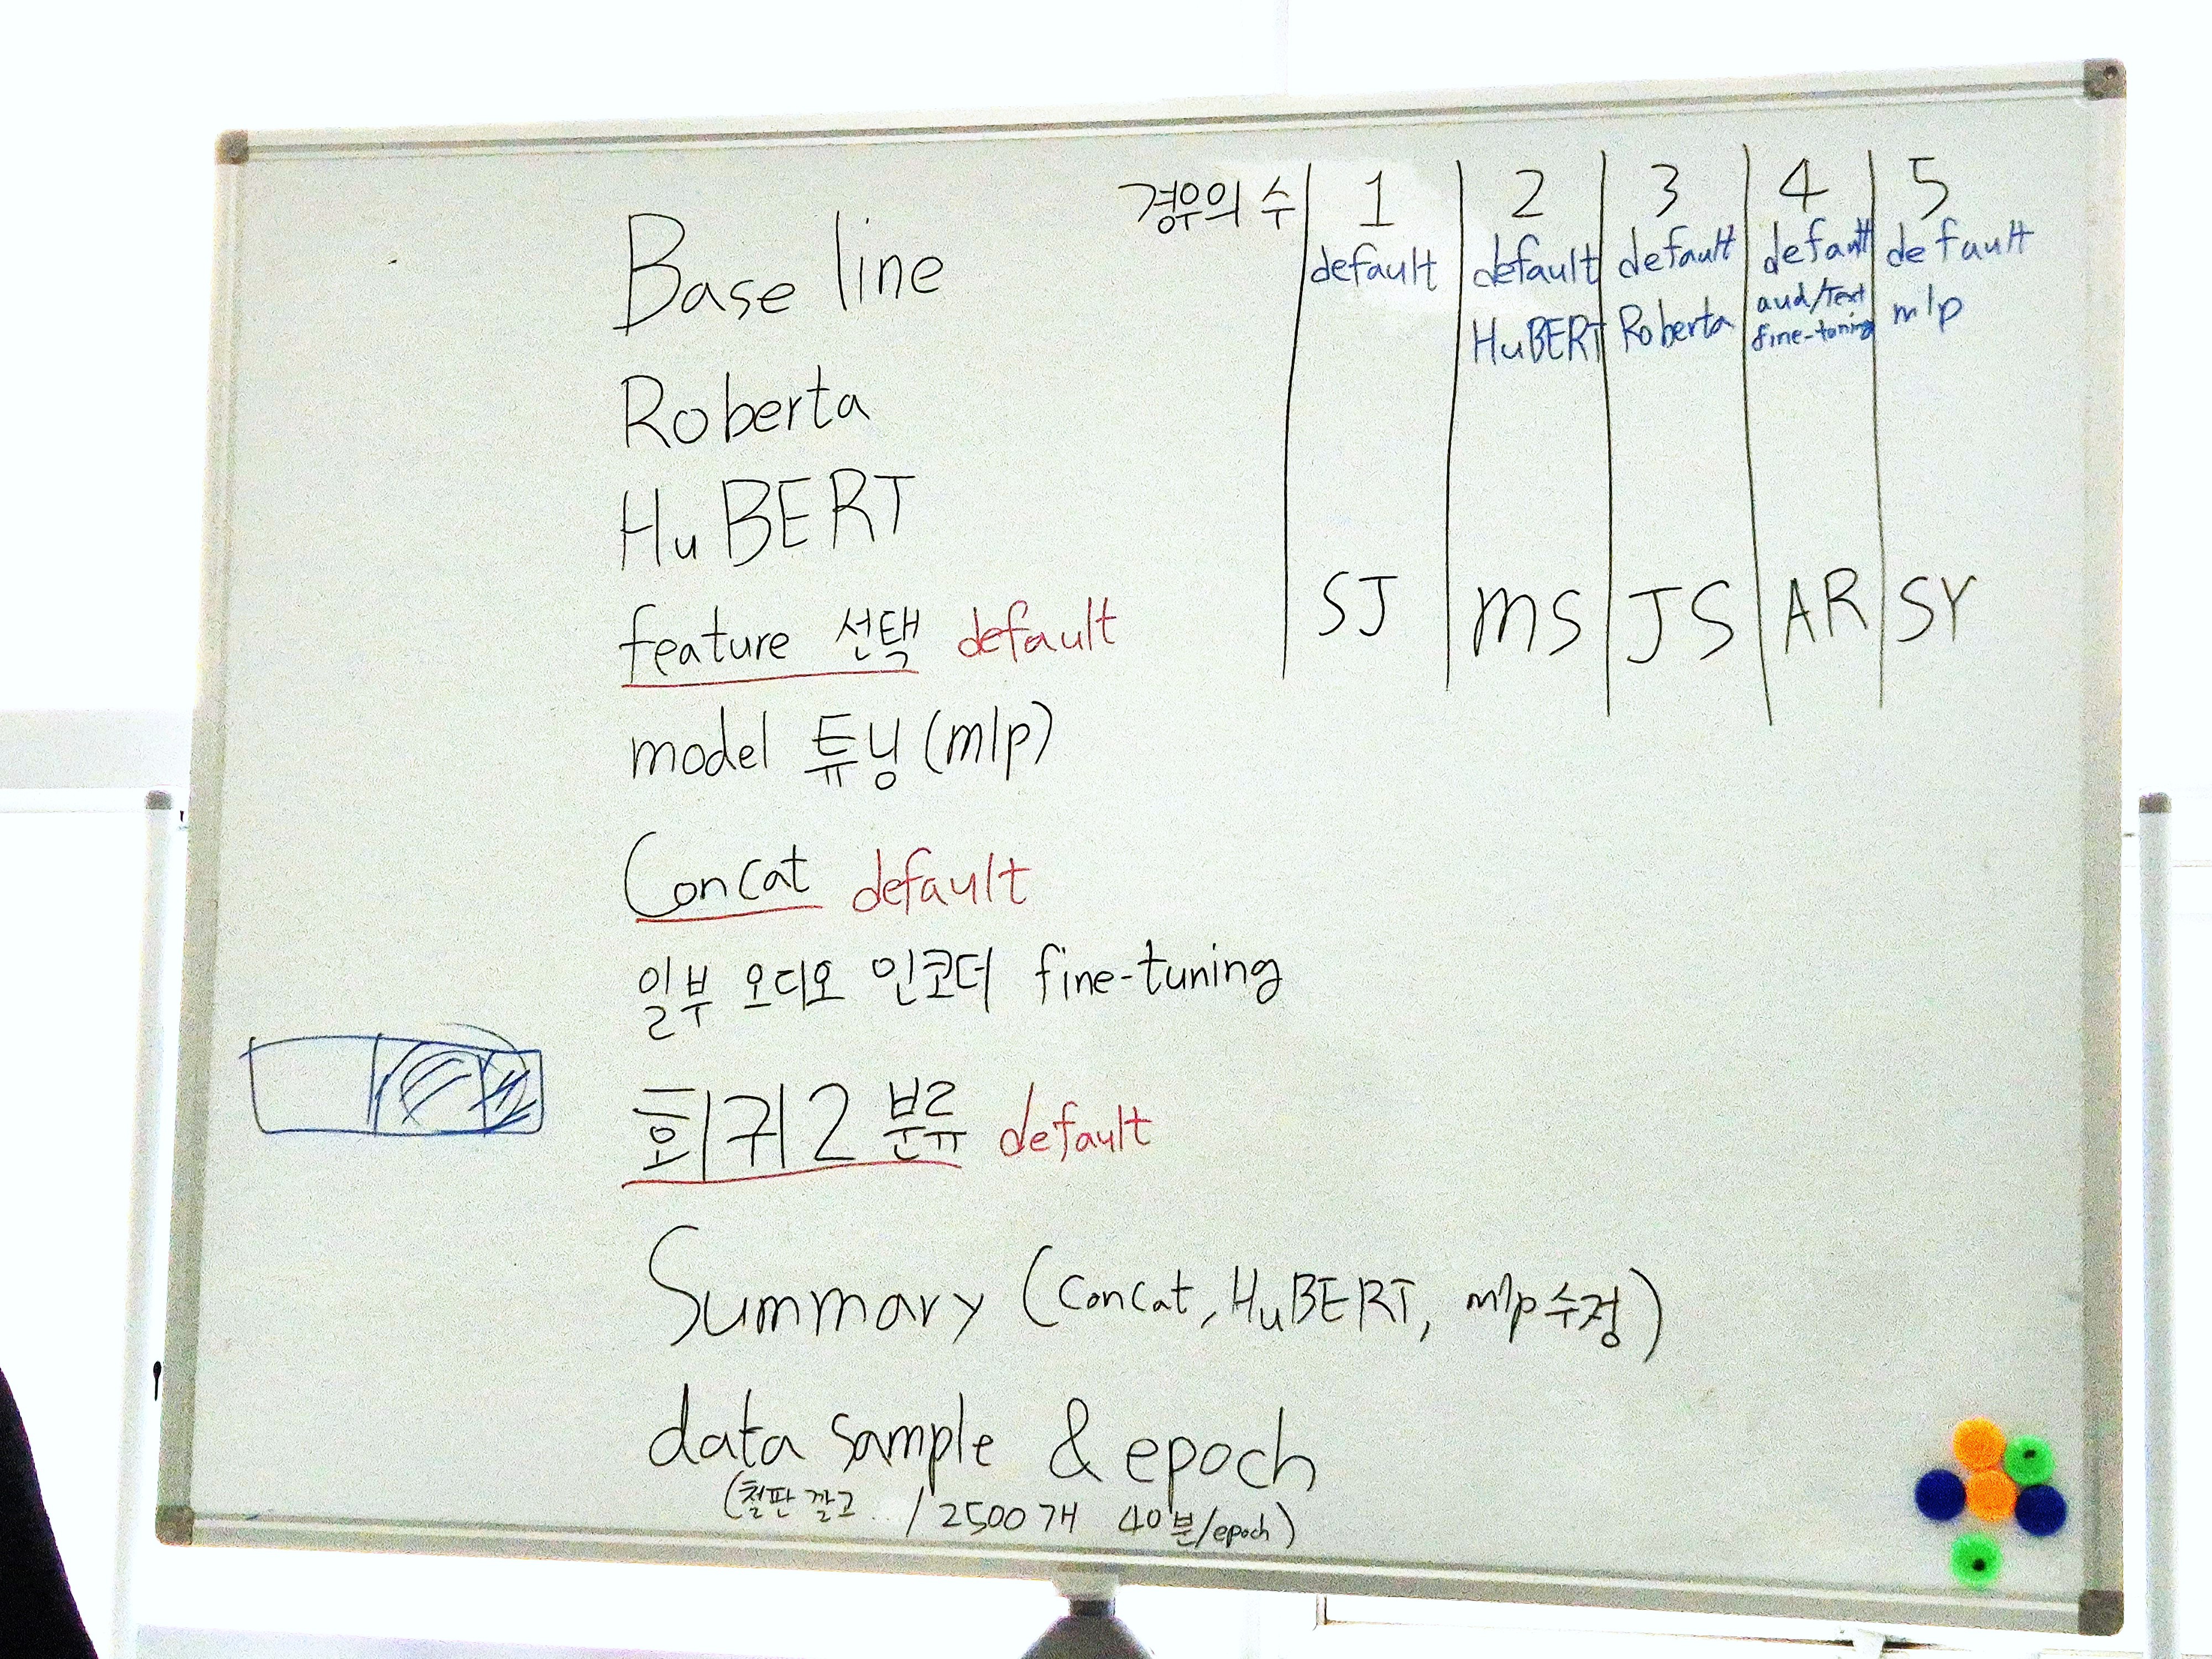 Base line
Roberta
HuBERT
feature 선택 default
model 튜닝 (mlp)
Concat default
일부 오디오 인코더 fine-tuning
회귀2 분류 default
Summary (Concat, HuBERT, mlp 수정)
data sample & epoch
(철판 깔고.. / 2500개 40분/epoch)
경우의 수 1 2 3 4 5
default default default default default
HuBERT Roberta aud/Text mlp
fine-tuning
SJ MS JS AR SY